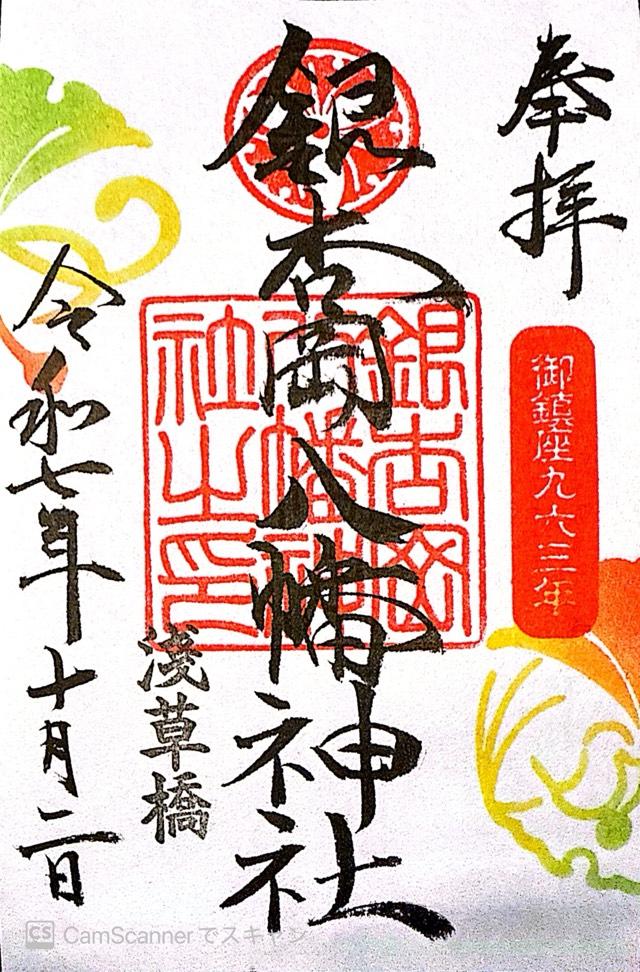 奉拝
御鎮座九六三年
銀杏岡八幡神社
銀杏岡八幡神社之印
浅草橋
令和七年十月二日
CS CamScanner でスキャン